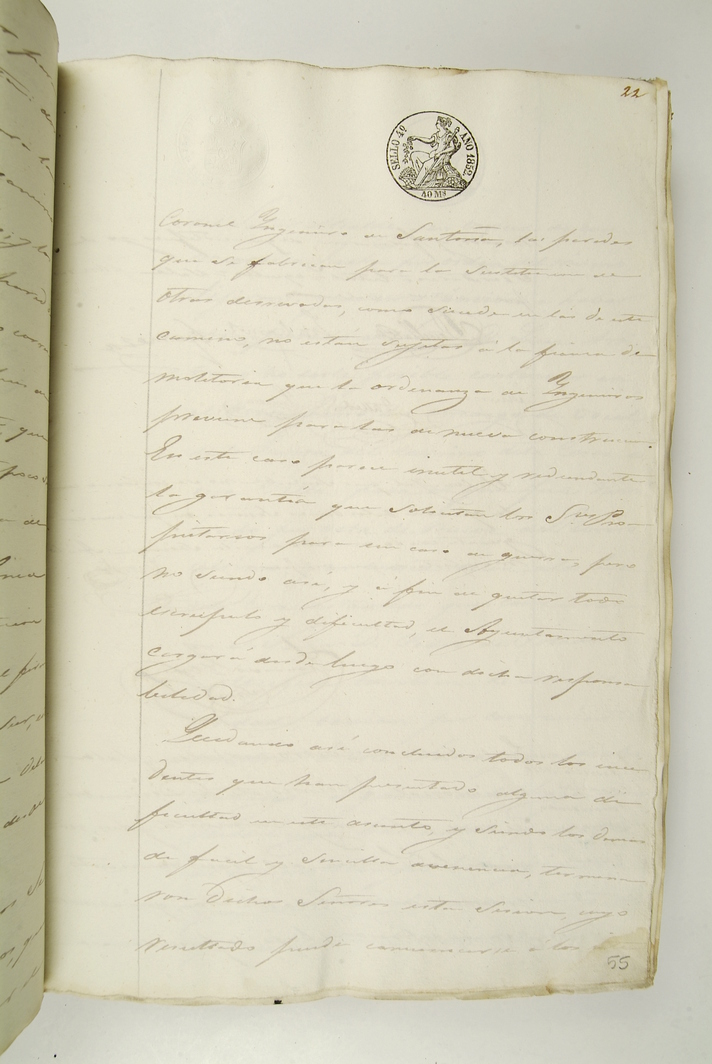 22
SELLO 4º AÑO 1852.
40 Ms
Coronel Yngeniero de Santoña, las paredes
que se fabrican para la sustitucion de
otras derrivadas, como sucede en las de este
camino, no estan sujetas á la fianza de
molitoria que la ordenanza de Yngenieros
previene para las de nueva construccion.
En este caso parece inutil y redundante
la garantía que solicitan los Sres Pro-
pietarios para un caso de guerra, pero
no siendo asi, y á fin de quitar todo
escrupulo y dificultad, el Ayuntamiento
cargará desde luego con dicha responsa
bilidad.
Quedando así concluidos todos los inci
dentes que han presentado alguna di
ficultad en este asunto, y siendo los demas
de facil y sencilla avenencia, termina
ron dichos Señores esta Sesion, cuyo
resultado puede comunicarse á los
55